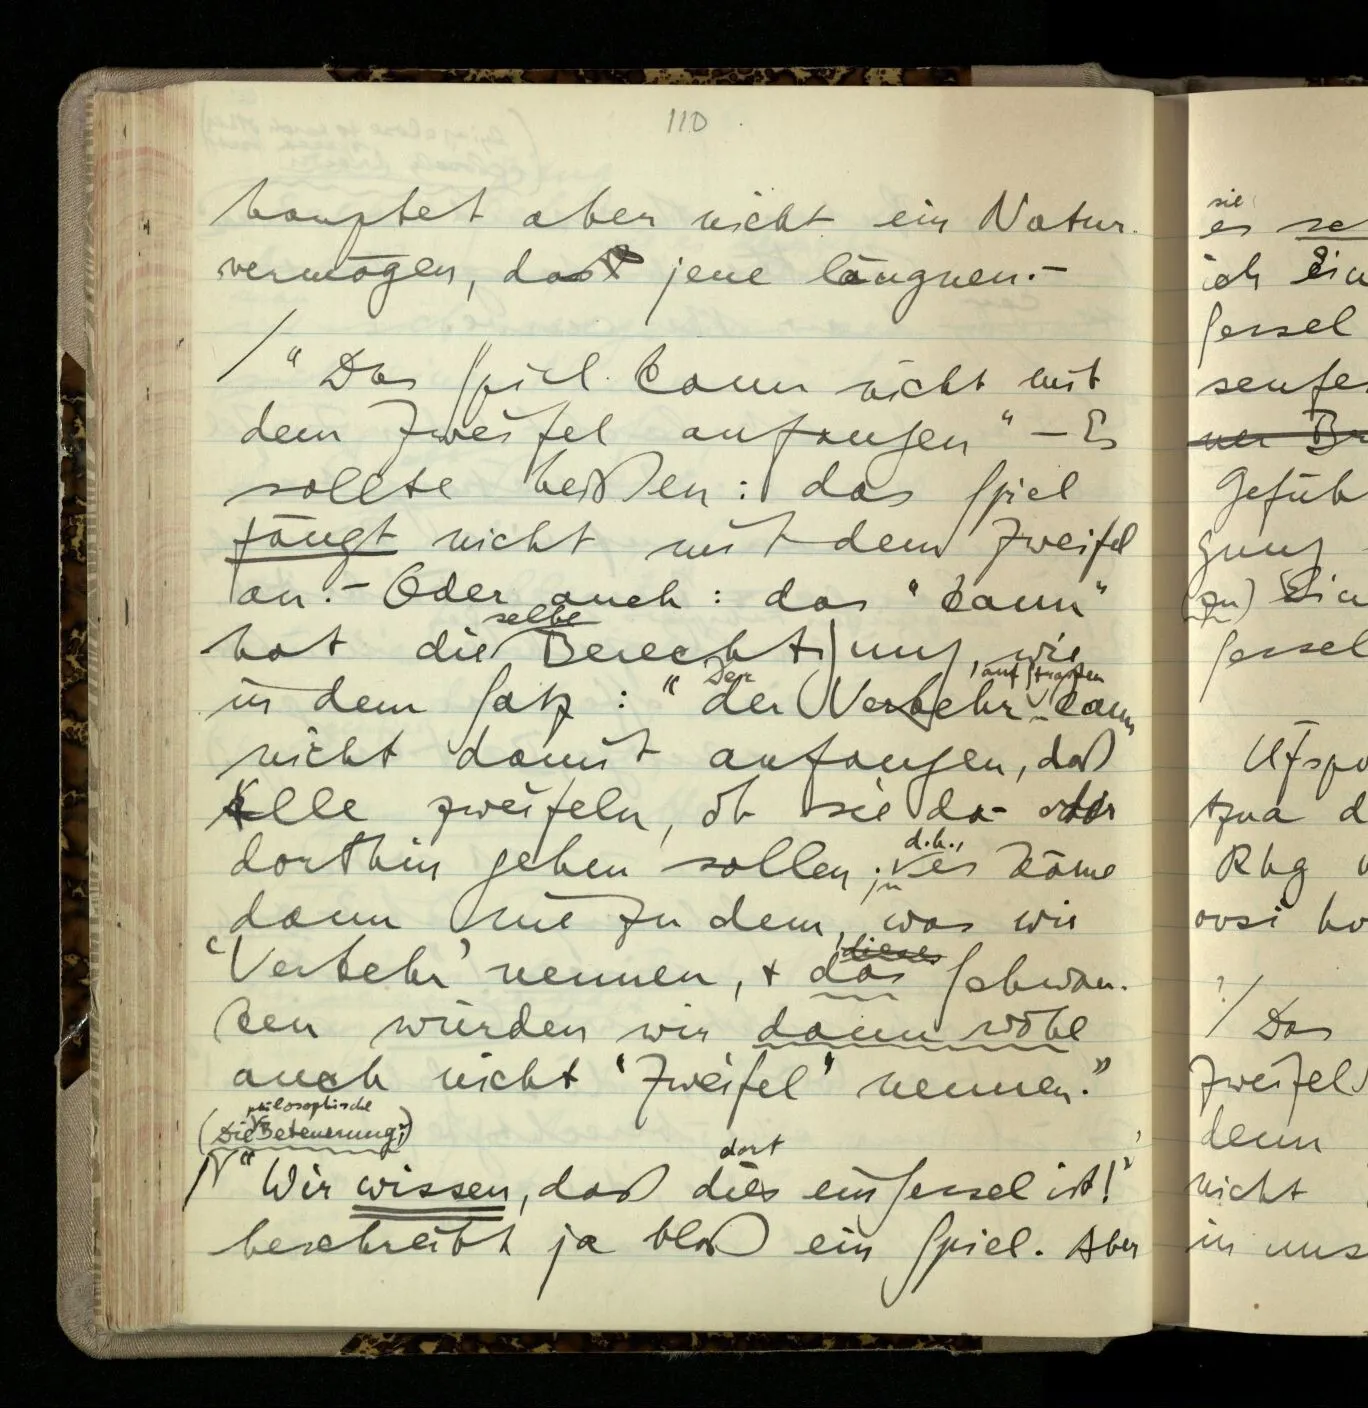 110
hauptet aber nicht ein Natur-
vermögen, das jene läugnen.–
/ “Das Spiel kann nicht mit
dem Zweifel anfangen” – Es
sollte heißen: das Spiel
fängt nicht mit dem Zweifel
an.– Oder auch: das “kann”
selbe
hat die Berechtigung, wie
Der auf Straßen
in dem Satz: “der Verkehr kann
nicht damit anfangen, daß
Alle zweifeln, ob sie da- oder
dorthin gehen sollen; d.h.,
ja es käme
dann nie zu dem, was wir
dieses
‘Verkehr’ nennen, + das Schwan-
ken würden wir dann wohl
auch nicht ‘Zweifel’ nennen.”
philosophische
(Die Beteuerung:)
dort
“Wir wissen, daß dies ein Sessel ist!”
beschreibt ja bloß ein Spiel. Aber
sie
es
ich
Sessel
(zu)
Sessel
?/ Das
denn
nicht
in uns